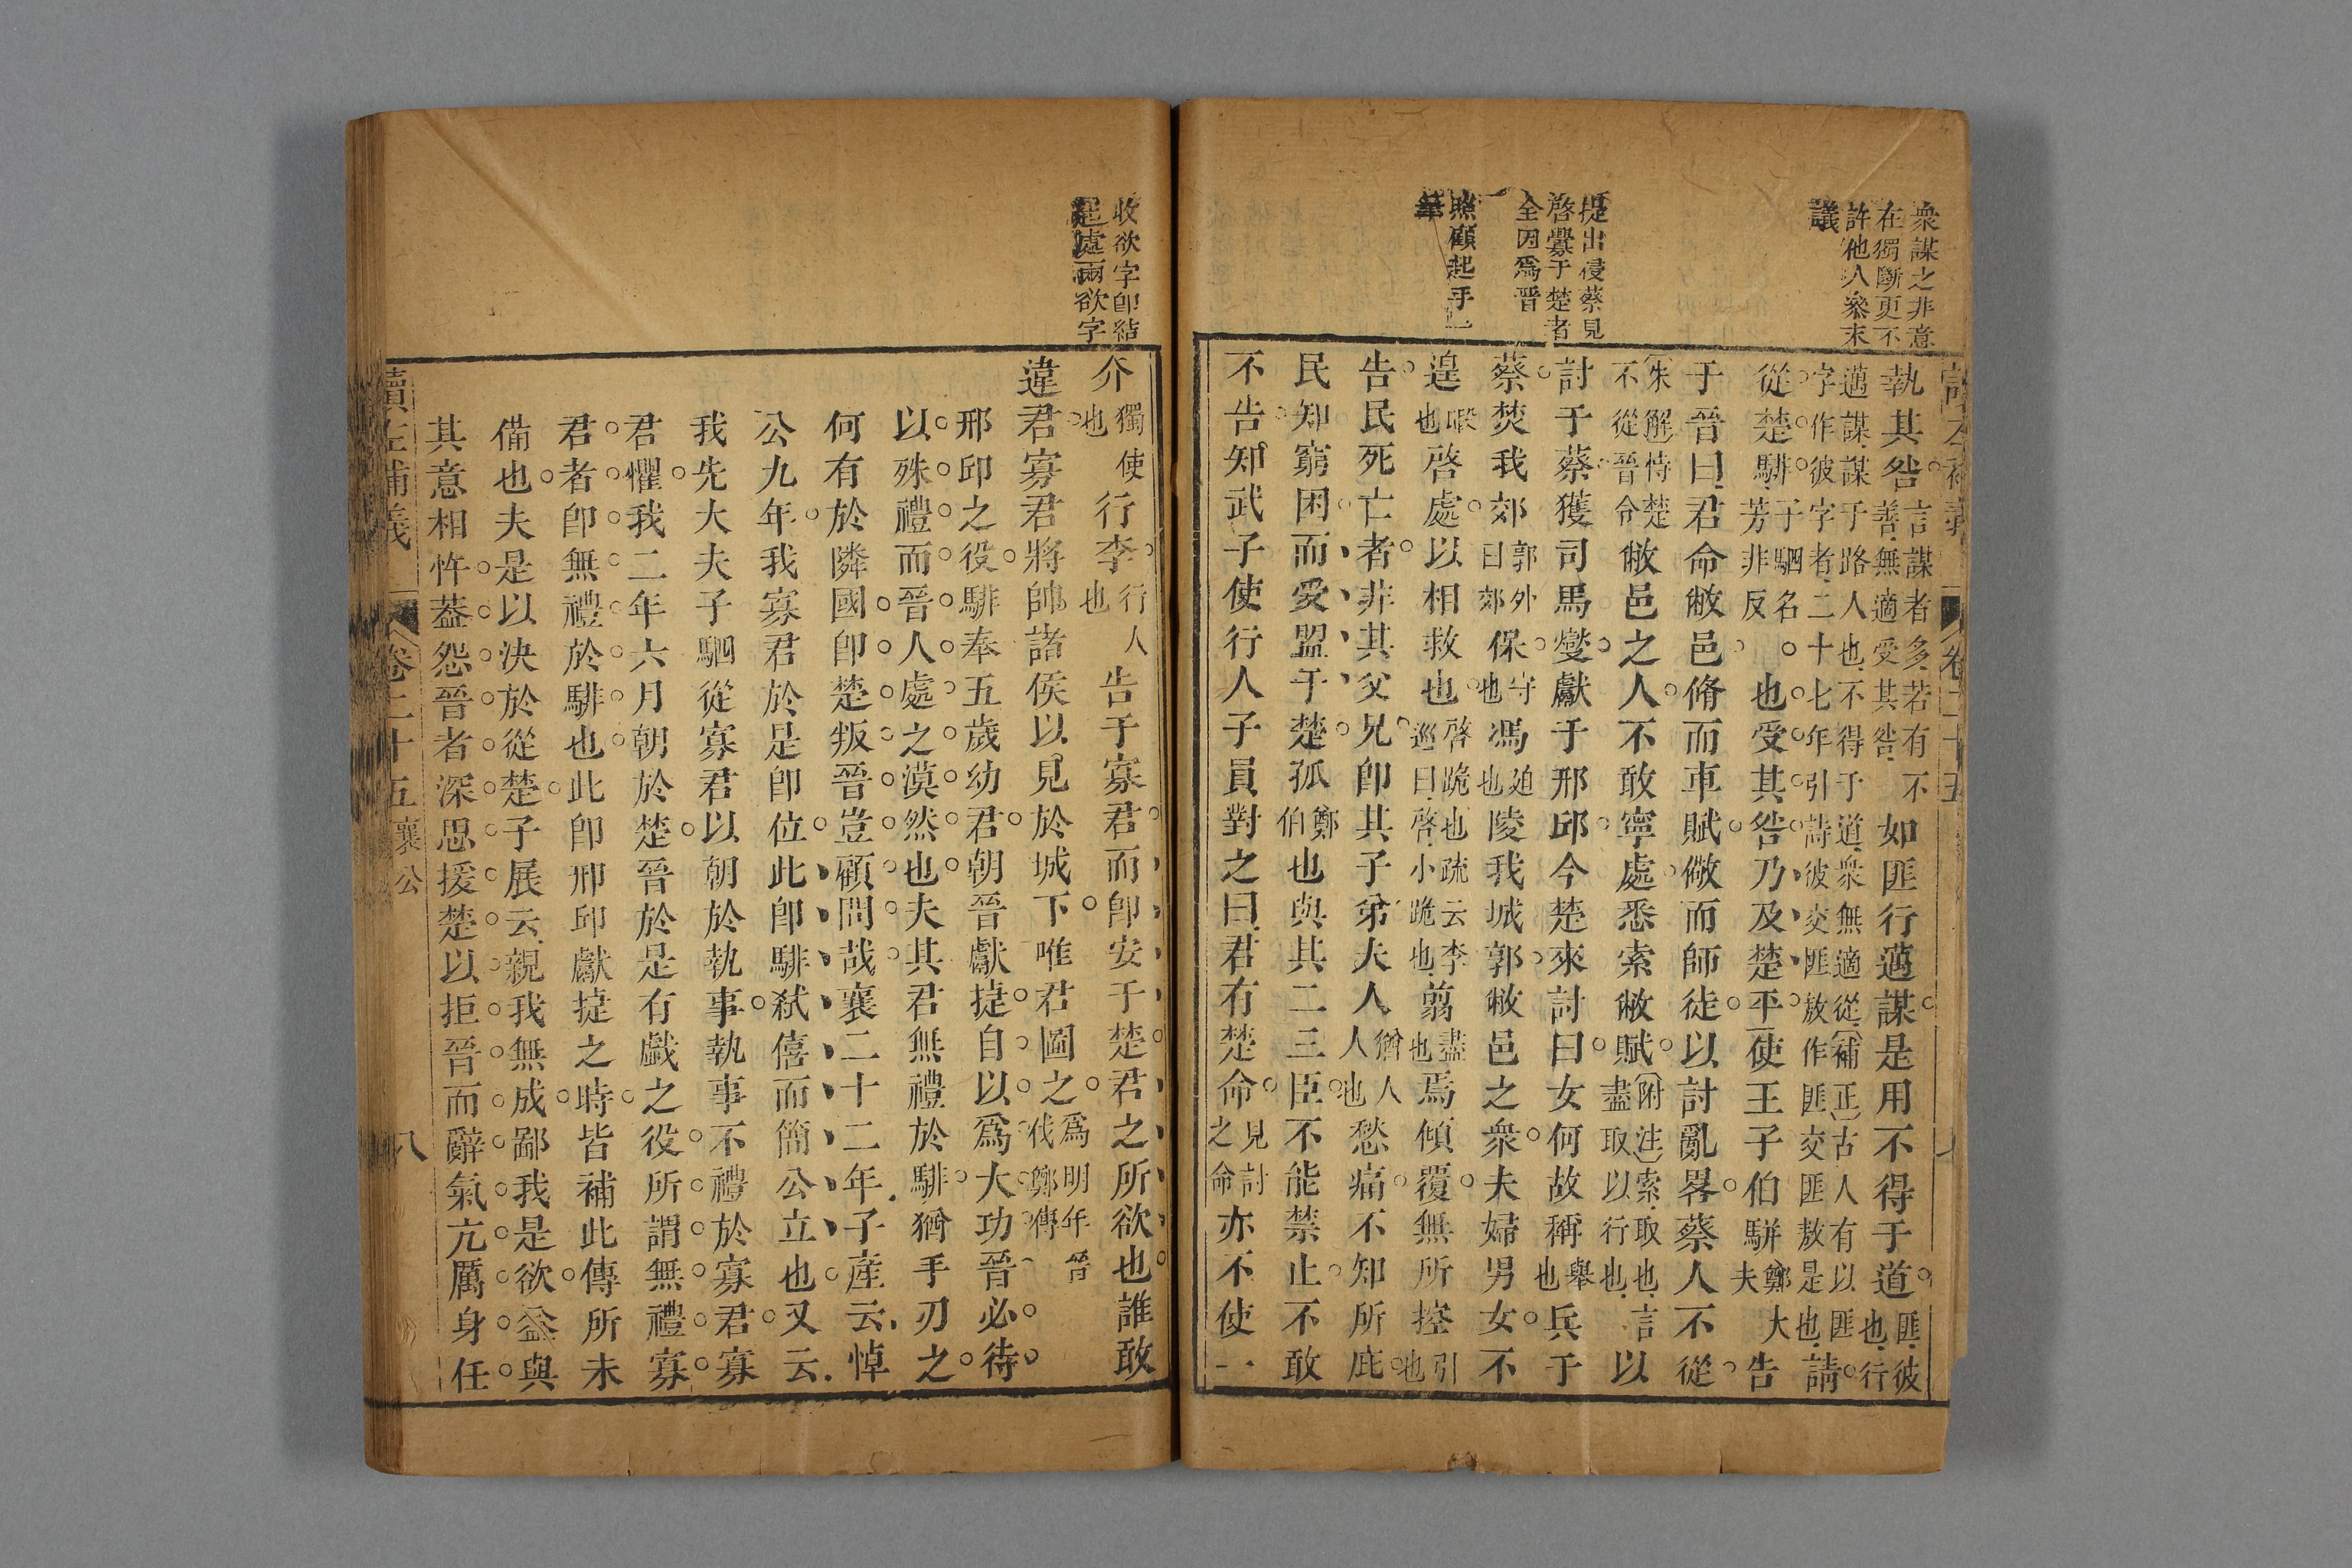 衆謀之非意
在獨斷更不
許他人叅末
議
提出侵蔡見
啓釁于楚者
全因爲晉
照顧起手一
筆
執其咎言謀者多若有不善無適受其咎如匪行邁謀是用不得于道匪彼也行
邁謀謀于路人也不得于道衆無適從補正古人有以匪字作彼字者二十七年引詩彼交匪敖作匪交匪敖是也請
從楚騑子駟名芳非反也受其咎乃及楚平使王子伯駢鄭大夫告
于晉曰君命敝邑脩而車賦儆而師徒以討亂畧蔡人不從
敝邑之人不敢寧處悉索敝賦附注索取也言盡取以行也以
朱解恃楚不從晉命
討于蔡獲司馬燮獻于邢邱今楚來討曰女何故稱舉也兵于
蔡焚我郊郭外曰郊保守也馮廹也陵我城郭敝邑之衆夫婦男女不
遑暇也啓處以相救也啓跪也疏云李巡曰啓小跪也翦盡也焉傾覆無所控引也
告民死亡者非其父兄卽其子弟夫人猶人人也愁痛不知所庇
民知窮困而受盟于楚孤鄭伯也與其二三臣不能禁止不敢
不告知武子使行人子員對之曰君有楚命見討之命亦不使一
讀左補義 卷二十五
收欲字卽結
起處兩欲字
介獨使也行李行人也告于寡君而卽安于楚君之所欲也誰敢
違君寡君將帥諸侯以見於城下唯君圖之爲明年晉伐鄭傳
邢邱之役騑奉五歲幼君朝晉獻捷自以爲大功晉必待
以殊禮而晉人處之漠然也夫其君無禮於騑猶手刃之
何有於隣國卽楚叛晉豈顧問哉襄二十二年子產云悼
公九年我寡君於是卽位此卽騑弒僖而簡公立也又云
我先大夫子駟從寡君以朝於執事執事不禮於寡君寡
君懼我二年六月朝於楚晉於是有戲之役所謂無禮寡
君者卽無禮於騑也此卽邢邱獻捷之時皆補此傳所未
備也夫是以決於從楚子展云親我無成鄙我是欲益與
其意相忤蓋怨晉者深思援楚以拒晉而辭氣亢厲身任
讀左補義 卷二十五 襄公 八